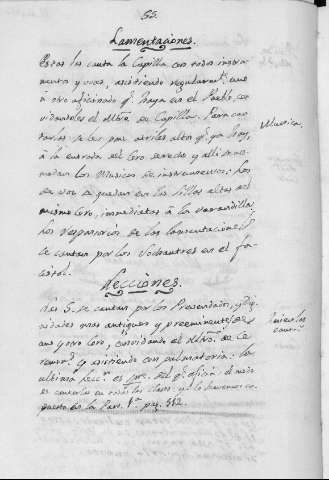 55.
Lamentaciones.
Estas las canta la Capilla con todos instru-
mentos y voces, asistiendo regularmte. uno
ù otro aficionado qe. haya en el Pueblo, con
vidandoles el Mtro. de Capilla. Para can
tarlas se les pone atriles altos qe. ya hay,
à la entrada del Coro derecho y alli se aco-
modan los Musicos de instrumentos: los
de voz se quedan en las sillas altas del
mismo Coro, inmediatos à las varandillas.
Los responsorios de las lamentaciones
se cantan por los Sochantres en el fa-
cistol.
Musica.
Lecciones.
Las 5. se cantan por los Presvendados, y Dig
nidades mas antiguos y preeminentes de
uno y otro Coro, convidando el Mtro. de Ce
remon.s y asistiendo con palmatoria: la
ultima Lecc.n es pre. del qe. oficia: el modo
de cantarlas
puesto en la Part. 1a. pag. 352.
Quienes las